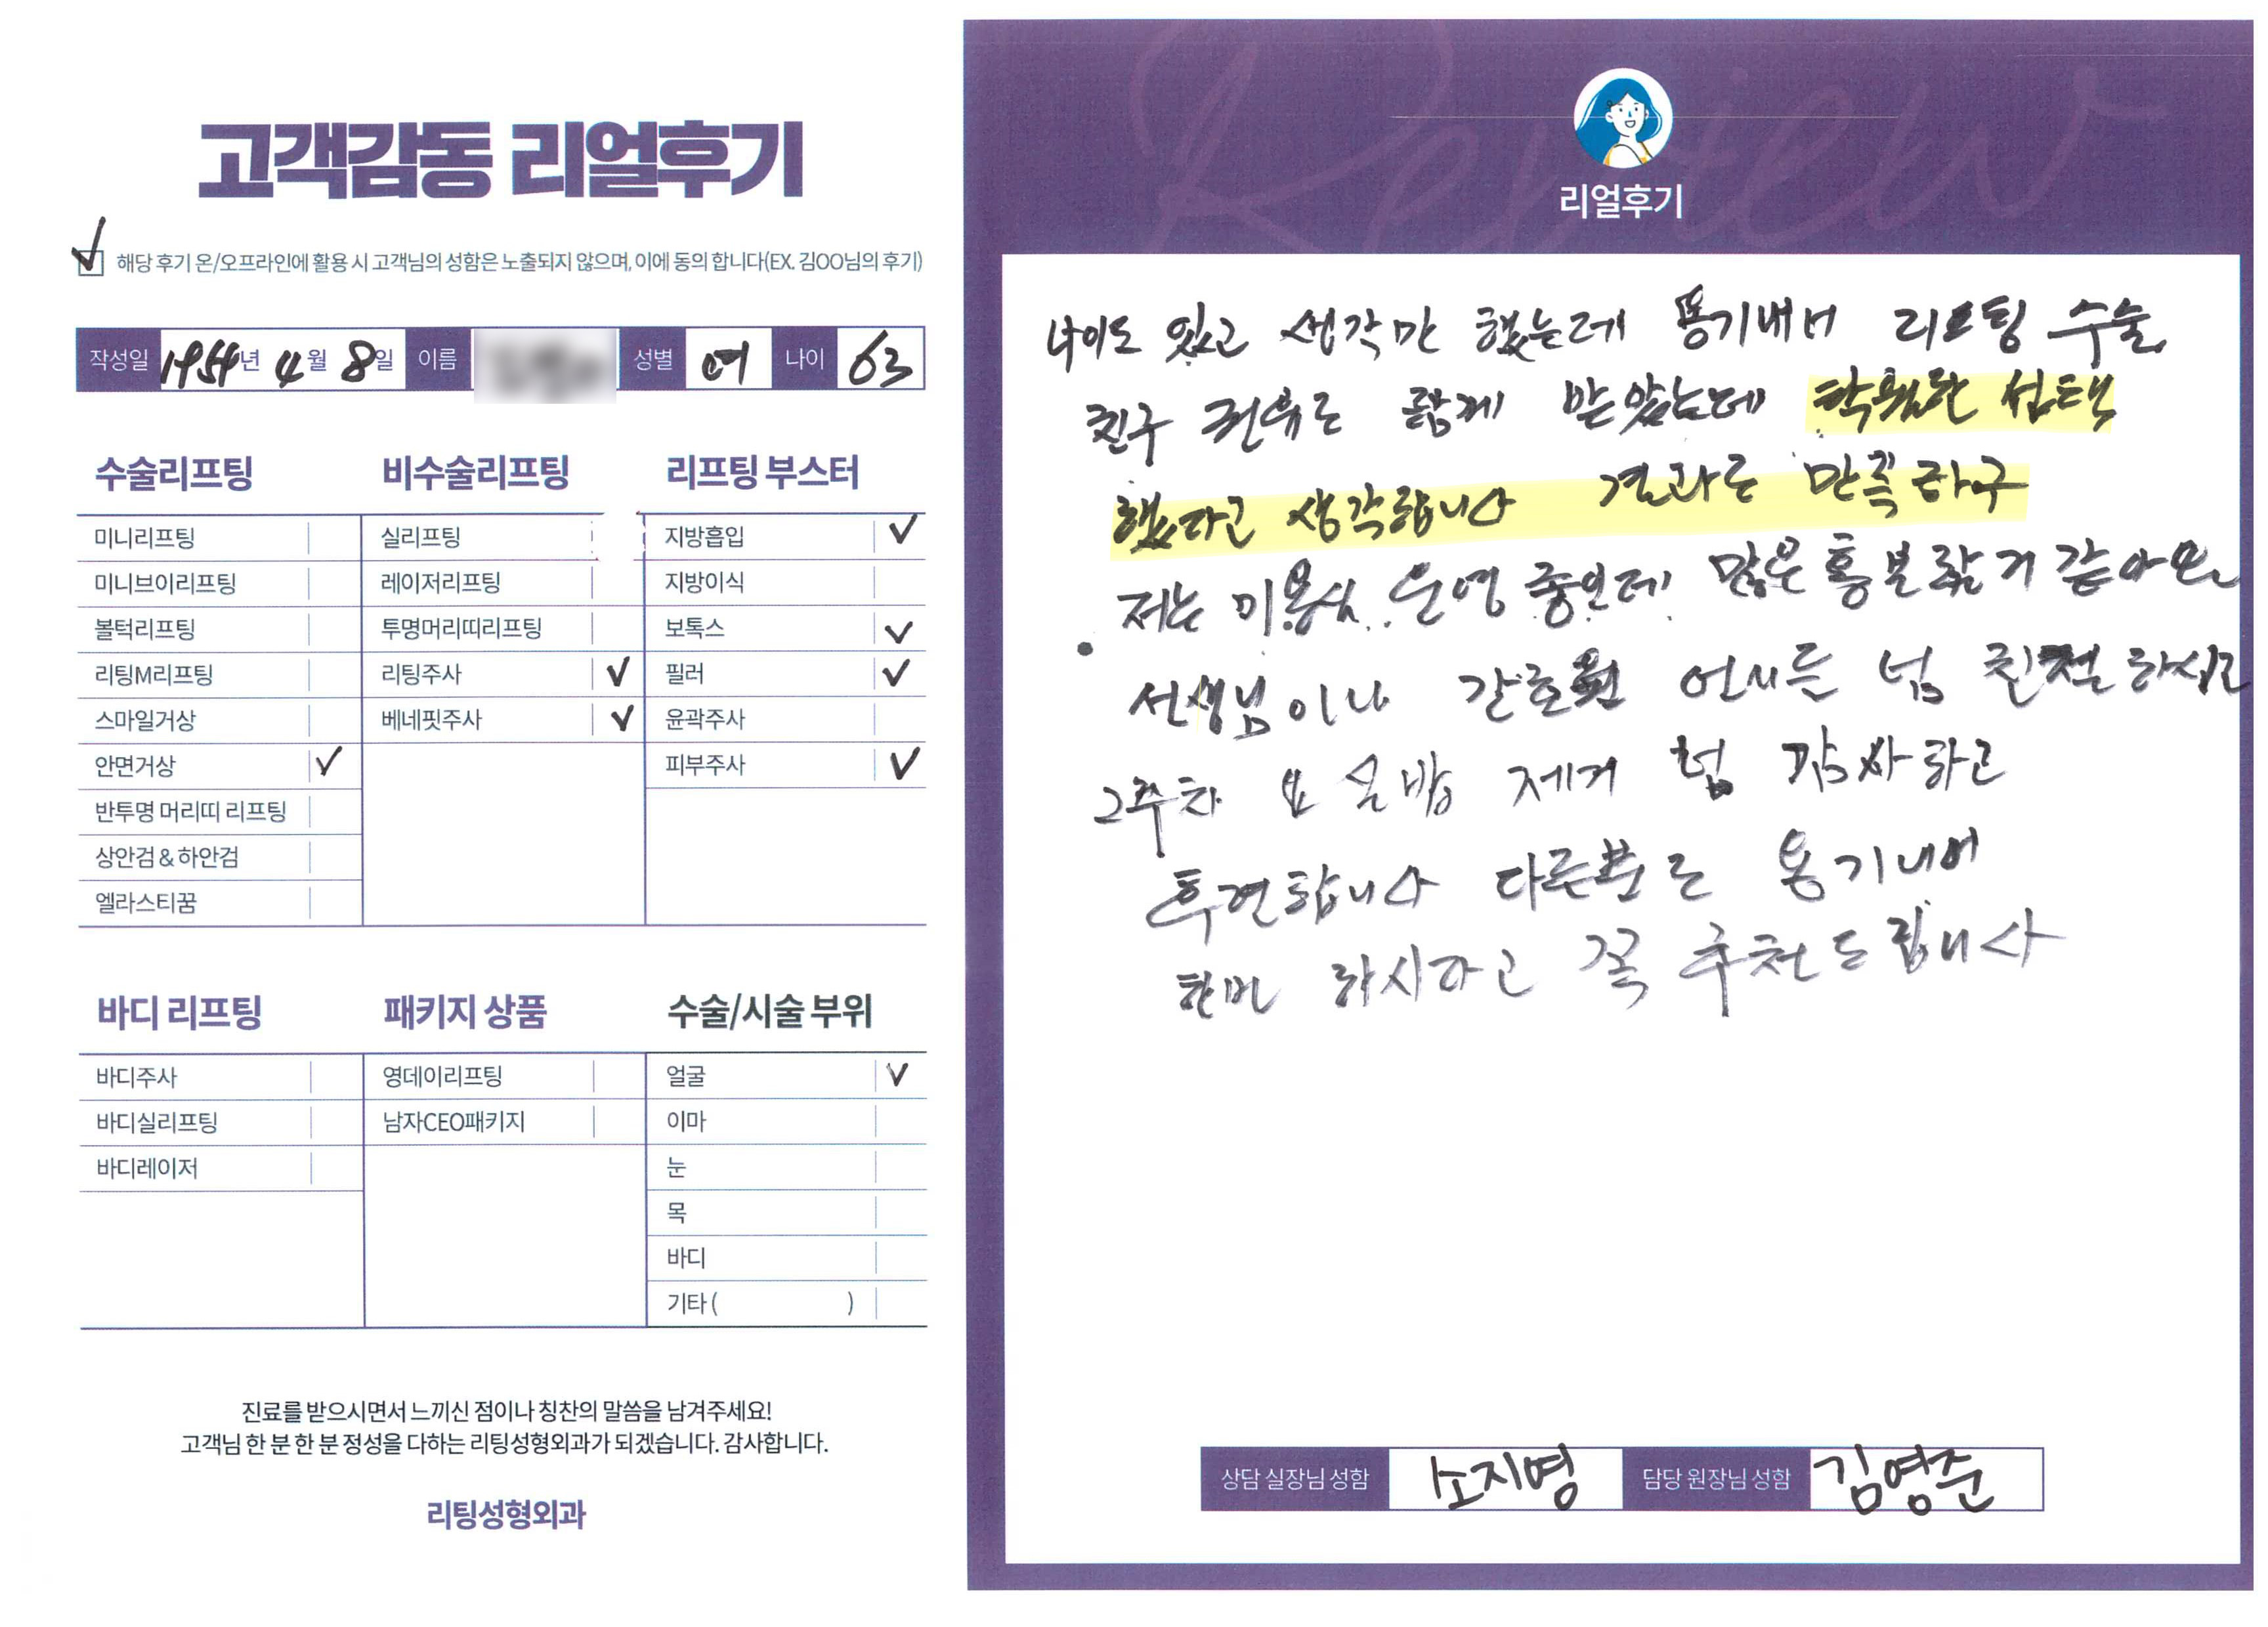 고객감동 리얼후기
해당 후기 온/오프라인에 활용 시 고객님의 성함은 노출되지 않으며, 이에 동의 합니다(EX. 김OO님의 후기)
작성일 1954년 4월 8일 이름 성별 여 나이 63
수술리프팅
미니리프팅
미니브이리프팅
볼턱리프팅
리팅M리프팅
스마일거상
안면거상
반투명 머리띠 리프팅
상안검 & 하안검
엘라스티꿈
비수술리프팅
실리프팅
레이저리프팅
투명머리띠리프팅
리팅주사
베네핏주사
리프팅 부스터
지방흡입
지방이식
보톡스
필러
윤곽주사
피부주사
바디 리프팅
바디주사
바디실리프팅
바디레이저
패키지 상품
영데이리프팅
남자CEO패키지
수술/시술 부위
얼굴
이마
눈
목
바디
기타 ( )
진료를 받으시면서 느끼신 점이나 칭찬의 말씀을 남겨주세요!
고객님 한 분 한 분 정성을 다하는 리팅성형외과가 되겠습니다. 감사합니다.
리팅성형외과
Review
리얼후기
나이도 있고 생각만 했는데 용기내어 리프팅 수술
친구 권유로 받았는데 탁월한 선택
했다고 생각합니다 결과도 만족하구
저는 미용실 운영 좋은데 많은 홍보 할거 같아요
선생님이나 간호원 언니들 넘 친절하시고
2주차 실밥 제거 감사하고
후련합니다 다른분도 용기내어
한번 하시라고 꼭 추천드립니다
상담 실장님 성함 소지영 담당 원장님 성함 김영준